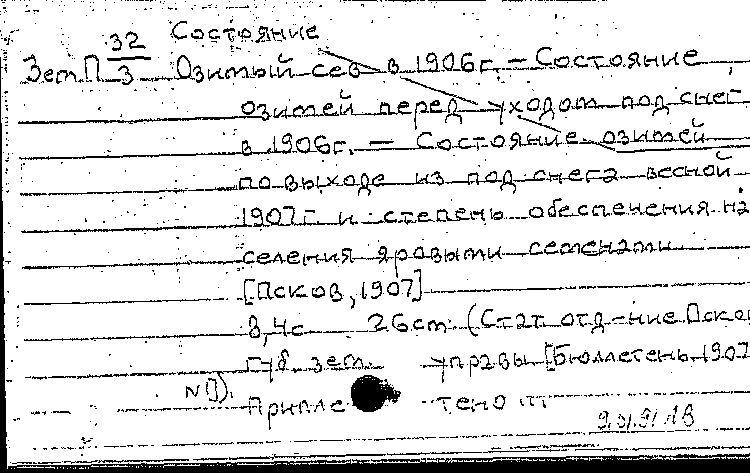 Состояние
Зем.П 32/3 Озимый сев в 1906г. – Состояние
озимей перед уходом под снег
в 1906г. – Состояние озимей
по выходе из под снега весной
1907г. и степень обеспечения на
селения яровыми семенами
[Псков, 1907]
8,4с 26см (Стат. отд-ние Пско
губ. зем. управы [Бюллетень 1907
N
Припле тено